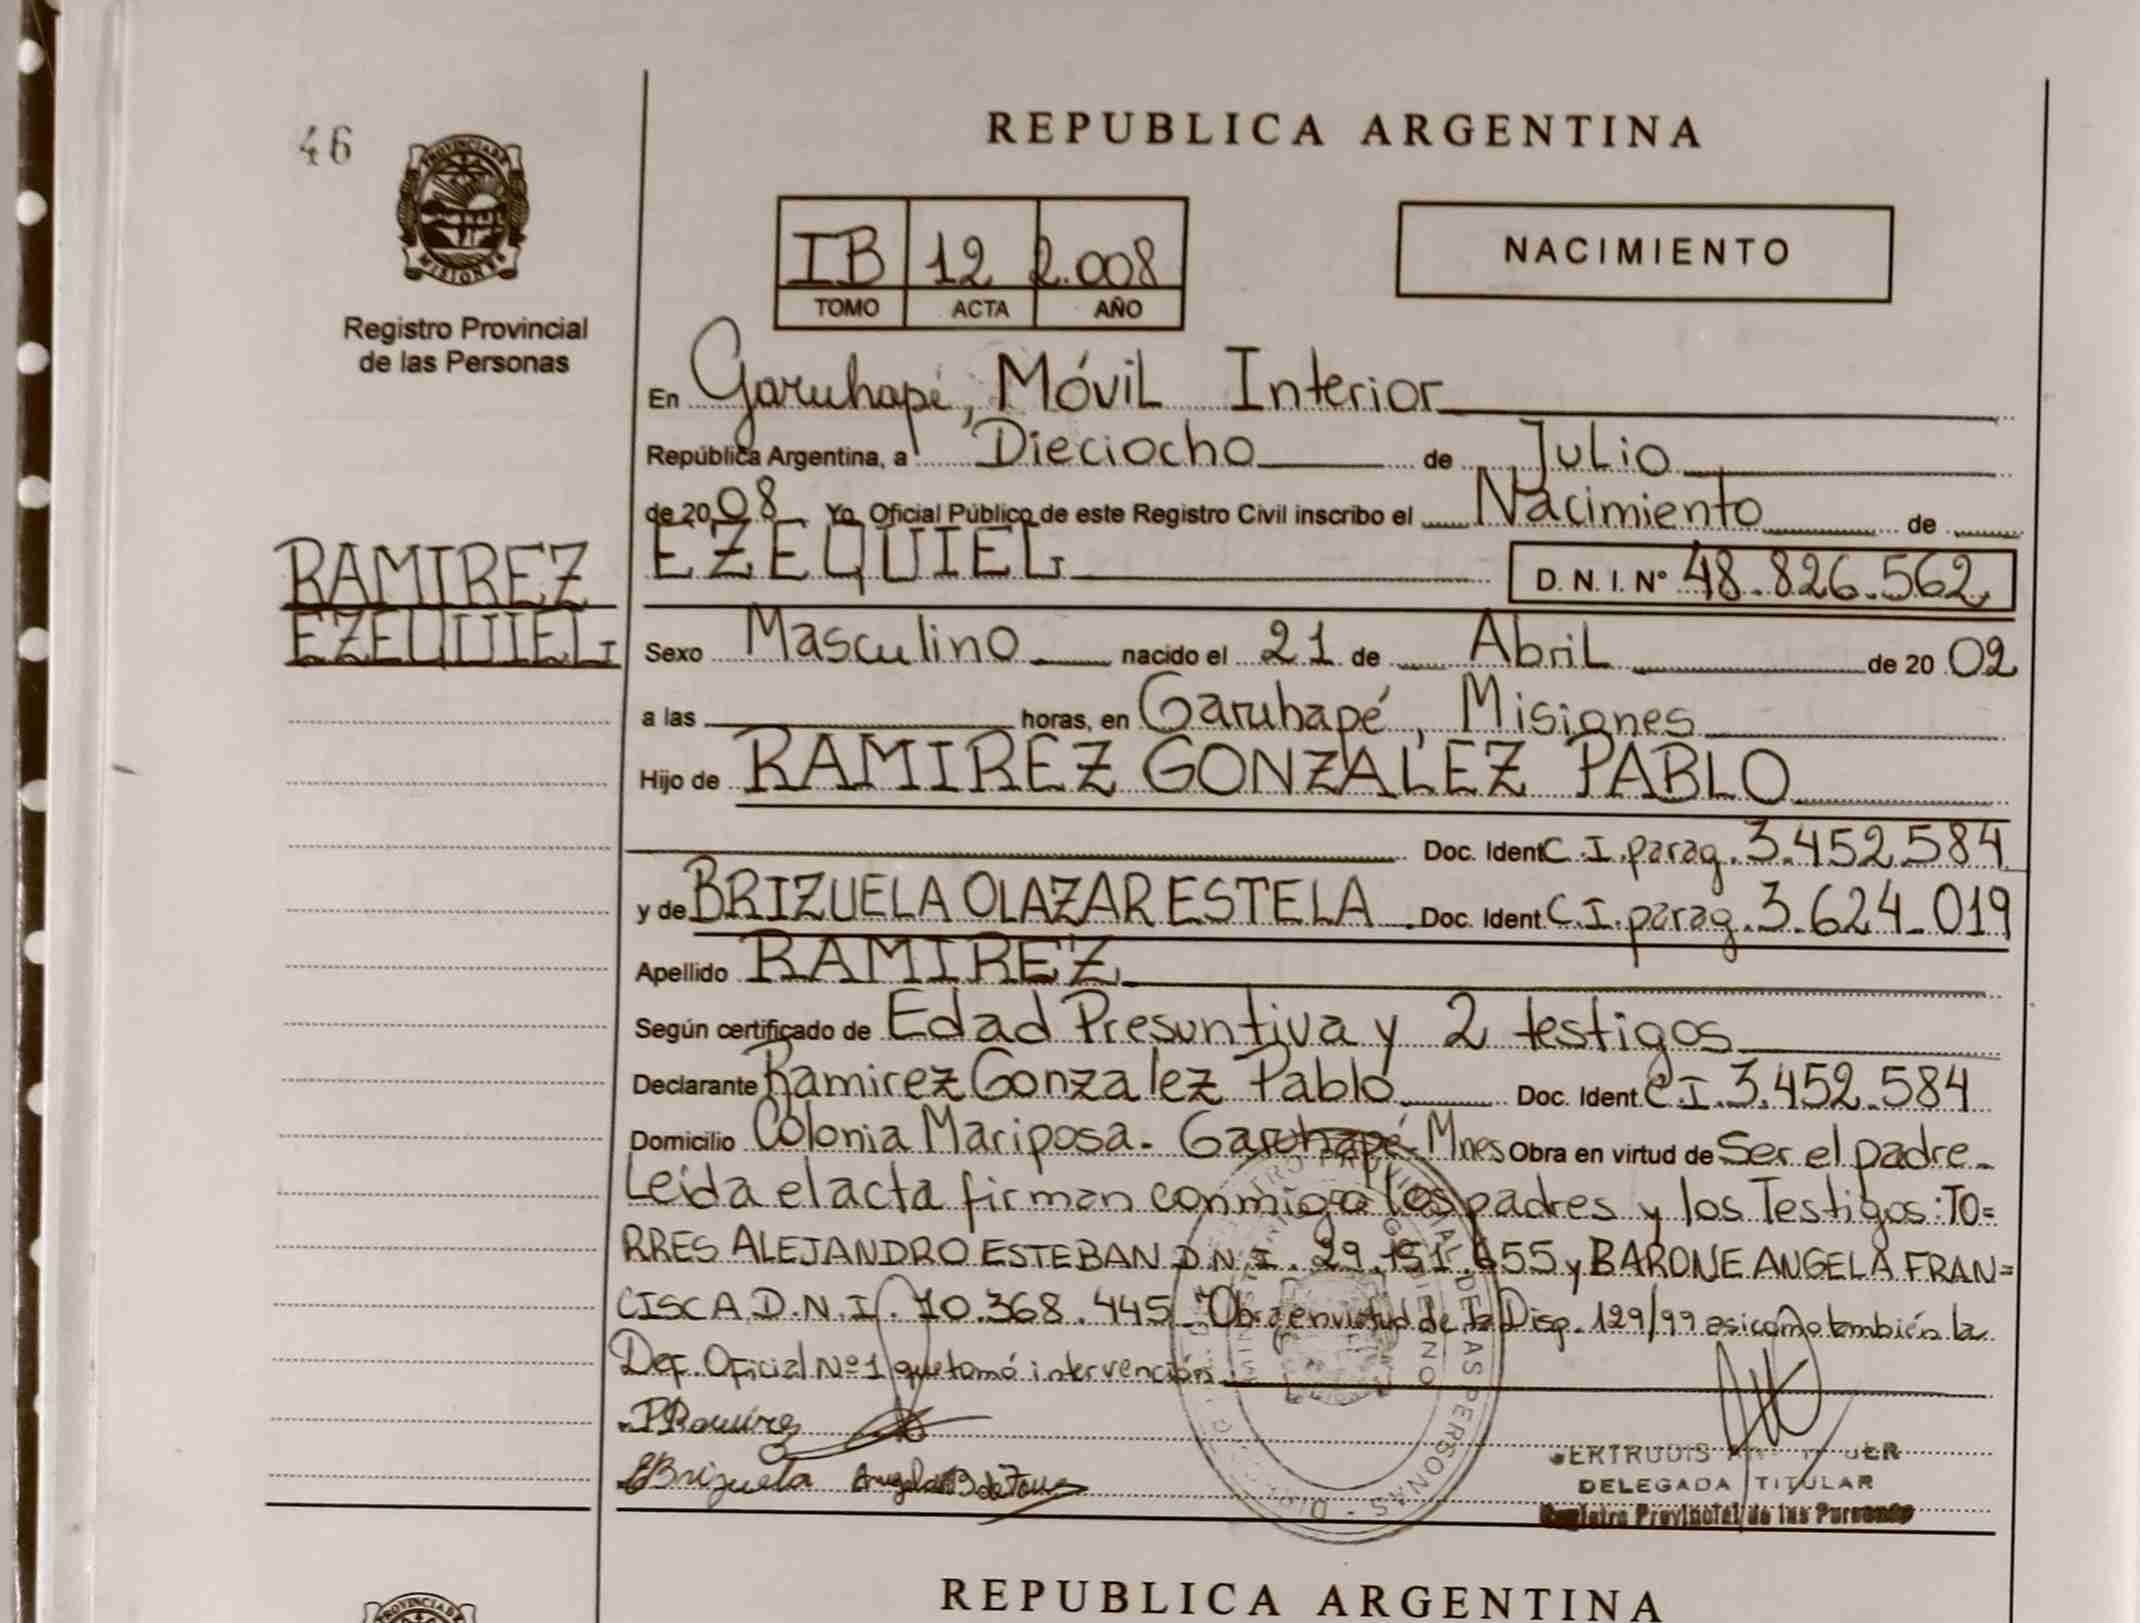 46
PROVINCIA DE
MISIONES
Registro Provincial
de las Personas
RAMIREZ
EZEQUIEL
REPUBLICA ARGENTINA
IB 12 2.008
TOMO ACTA AÑO
NACIMIENTO
En Garuhapé, Móvil Interior
República Argentina, a Dieciocho de Julio
de 2008 Yo Oficial Público de este Registro Civil inscribo el Nacimiento de
EZEQUIEL D. N. I. Nº 48.826.562
Sexo Masculino nacido el 21 de Abril de 20 02
a las horas, en Garuhapé, Misiones
Hijo de RAMIREZ GONZALEZ PABLO
Doc. Ident C.I. parag. 3.452.584
y de BRIZUELA OLAZAR ESTELA Doc. Ident C.I. parag. 3.624.019
Apellido RAMIREZ
Según certificado de Edad Presuntiva y 2 testigos
Declarante Ramirez Gonzalez Pablo Doc. Ident. C.I. 3.452.584
Domicilio Colonia Mariposa - Garuhapé - Mnes Obra en virtud de Ser el padre
Leida el acta firman conmigo los padres y los Testigos: TO=
RRES ALEJANDRO ESTEBAN D.N.I. 29.151.655 y BARONE ANGELA FRAN=
CISCA D.N.I. 10.368.445. Obra en virtud de la Disp. 129/99 asi como también la
Def. Oficial Nº 1 que tomó intervención
P Ramirez
E Brizuela
GERTRUDIS
DELEGADA TITULAR
Registro Provincial de las Personas
REPUBLICA ARGENTINA
PROVINCIA DE